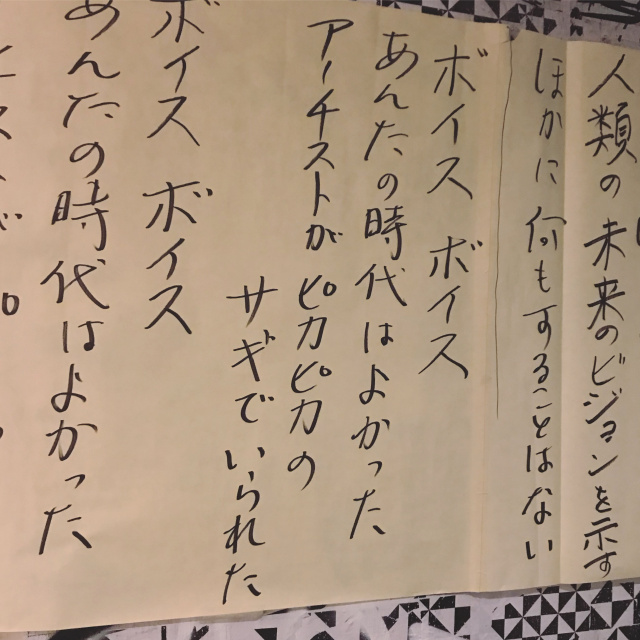 人類の未来のビジョンを示す
ほかに何もすることはない
ボイス ボイス
あんたの時代はよかった
アーチストがピカピカの
サギでいられた
ボイス ボイス
あんたの時代はよかった